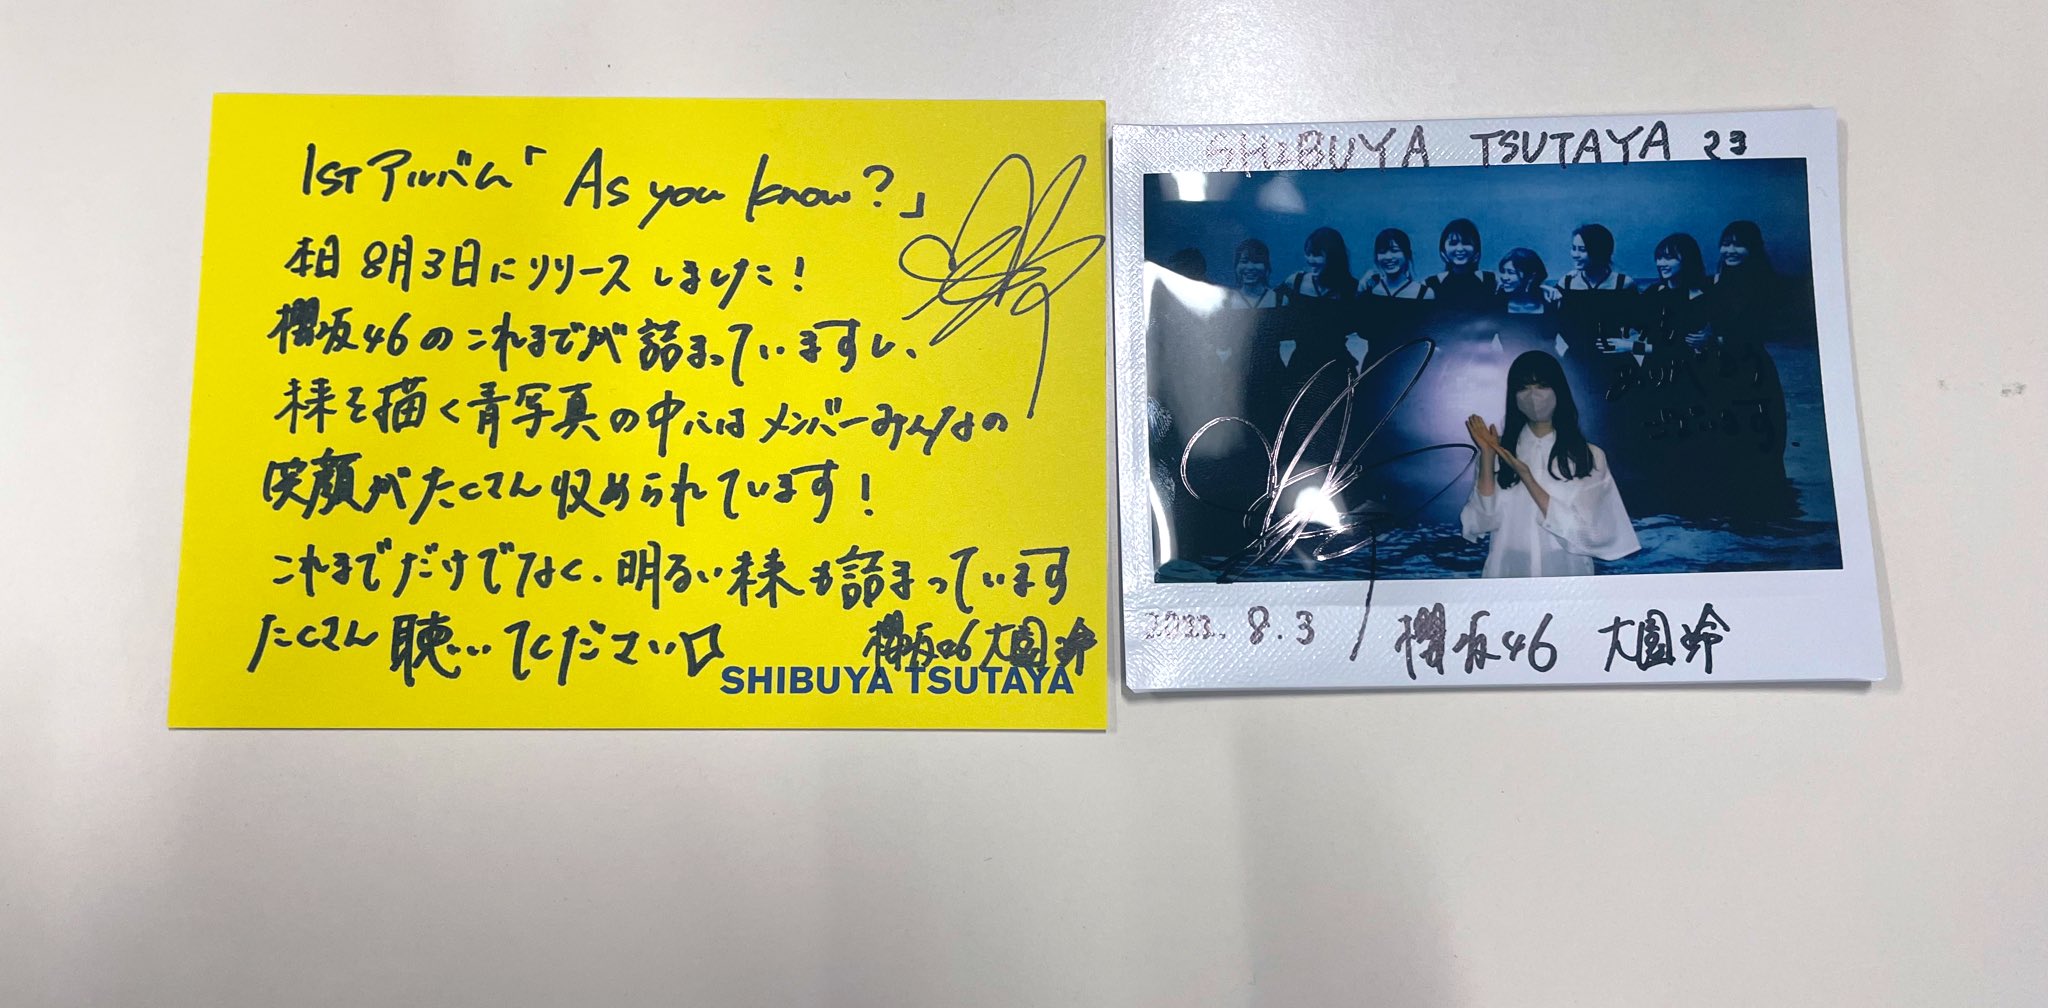 1ST アルバム「As you know?」
本日 8月3日にリリースしました!
櫻坂46のこれまでが詰まっていますし、
未来を描く青写真の中にはメンバーみんなの
笑顔がたくさん収められています!
これまでだけでなく、明るい未来も詰まっています
たくさん聴いてください
櫻坂46 大園玲
SHIBUYA TSUTAYA
SHIBUYA TSUTAYA さま
2022. 8. 3
櫻坂46 大園玲